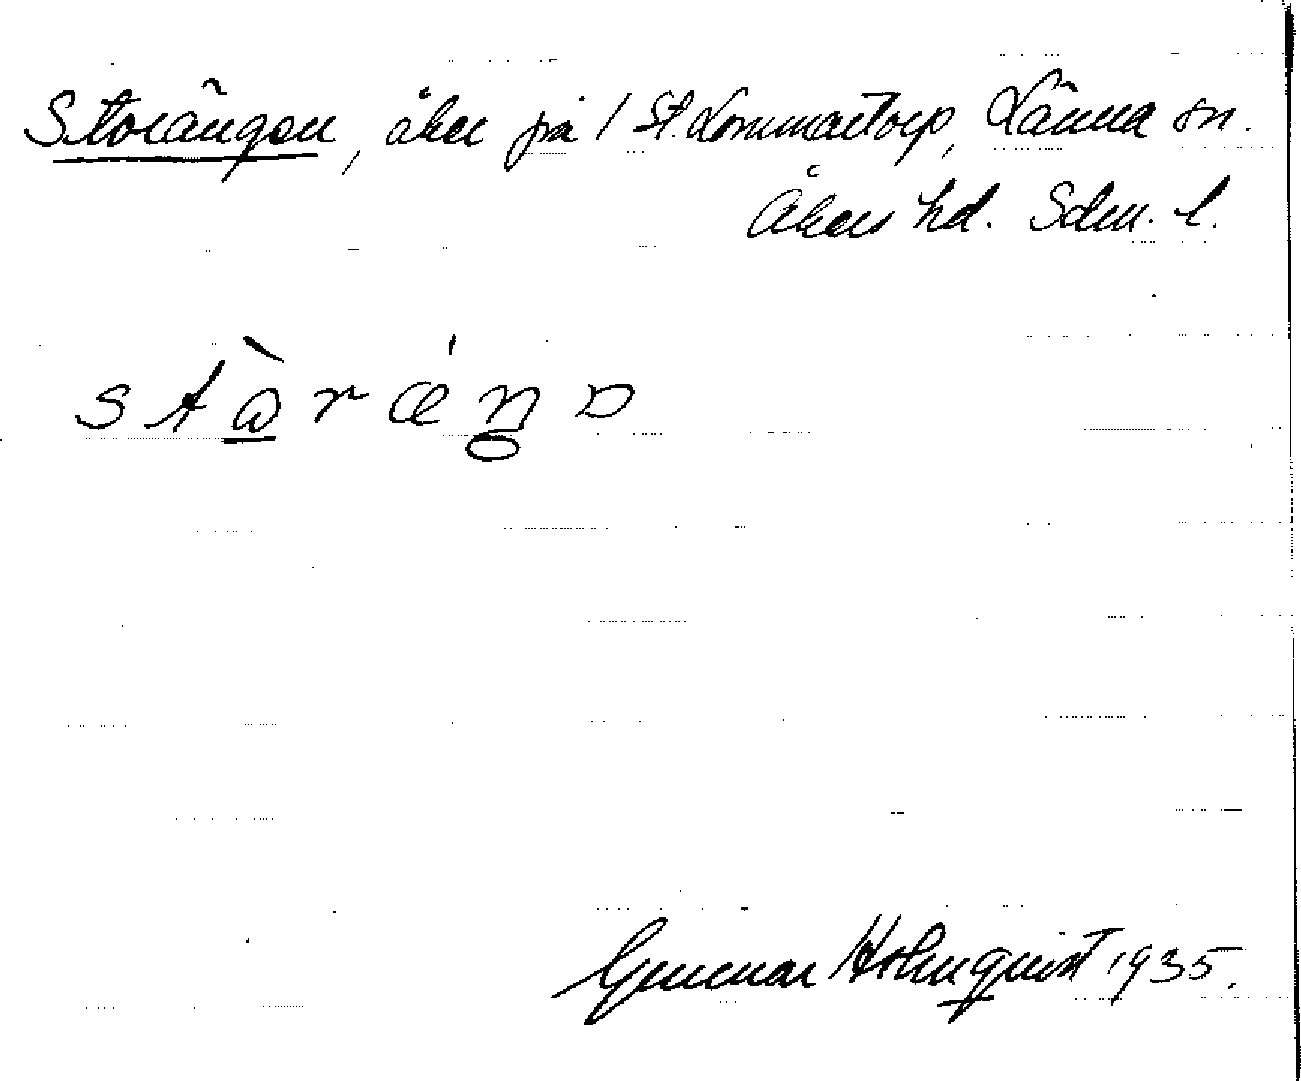 Storängen, åker på 1 St. Lommartorp, Länna sn.
Åkers hd. Sdm. l.
Gunnar Holmquist 1935.